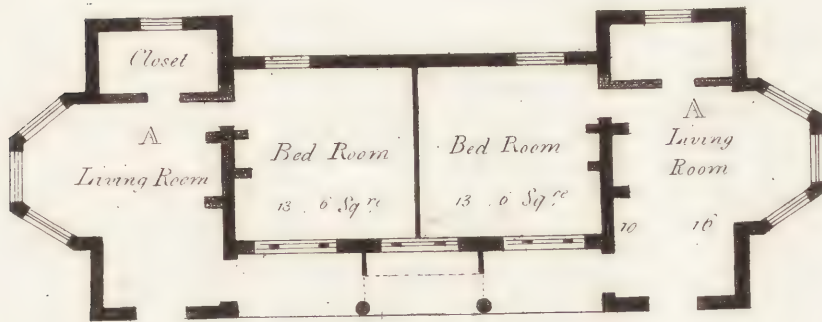 Closet
A
Living Room
Bed Room
13 . 6 Sqre
Bed Room
13 . 6 Sqre
A
Living
Room
10 16